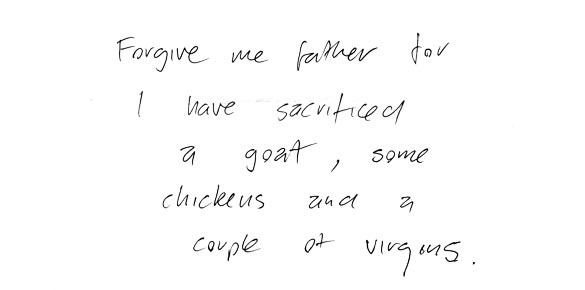 Forgive me father for
I have sacrificed
a goat, some
chickens and a
couple of virgons.